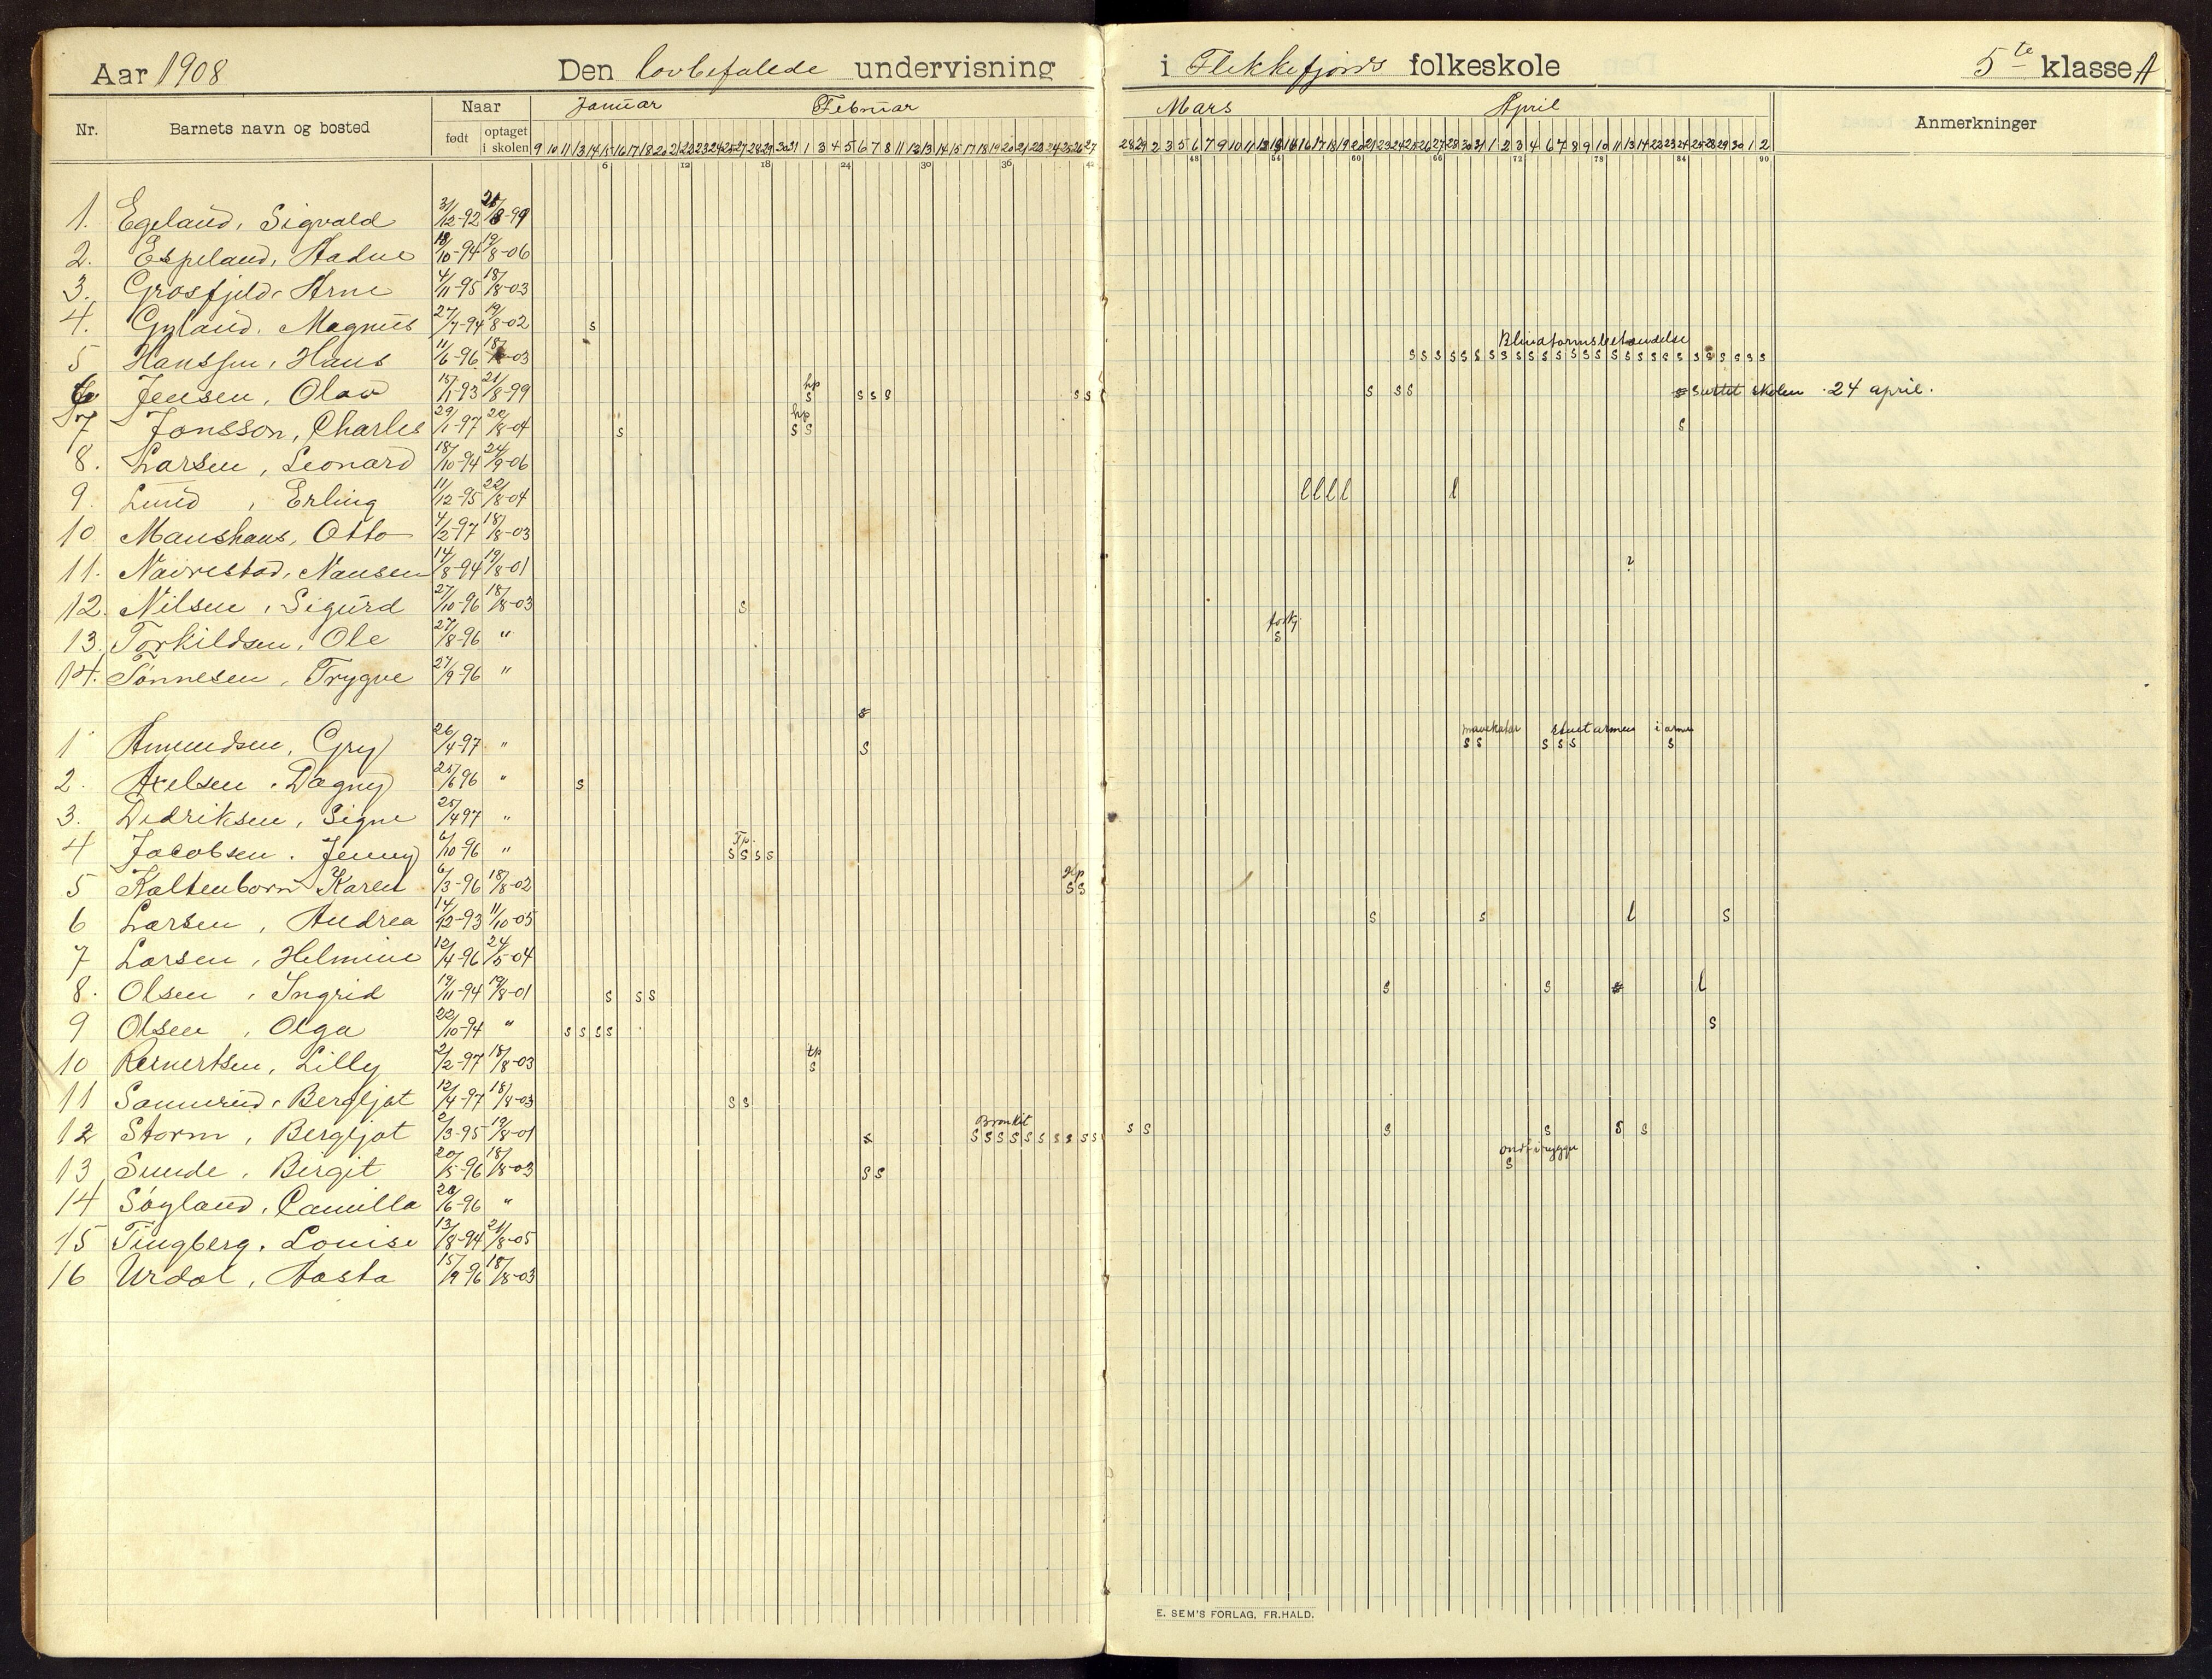 Aar 1908 Den lovbefalede undervisning i Flekkefjords folkeskole 5te klasse A
Nr. Barnets navn og bosted Naar Januar Februar Mars April Anmerkninger
født optaget i skolen
9 10 11 13 14 15 16 17 18 20 21 22 23 24 25 27 28 29 30 31 1 3 4 5 6 7 8 11 12 13 14 15 17 18 19 20 21 22 24 25 26 27 28 29 2 3 4 5 6 7 9 10 11 12 13 14 16 17 18 19 20 21 23 24 25 26 27 28 30 31 1 2 3 4 6 7 8 9 10 11 13 14 22 23 24 25 28 29 30 1 2
6 12 18 24 30 36 42 48 54 60 66 72 78 84 90
1. Egeland, Sigvald 31/12-92 21/8-99
2. Espeland, Hadne 18/10-94 19/8-06
3. Grosfjeld, Arne 4/11-95 18/8-03
4. Gyland, Magnus 27/7-94 19/8-02 s
Blindtarmsbetændelse
5 Hanssen, Hans 11/6-96 18/8-03 s s s s s s s s s s s s s s s s s s s s s s s s s s s
hp
6 Jensen, Olav 15/1-93 21/8-99 s s s s s s s s s sluttet skolen 24 april.
hp
7 Jonsson, Charles 29/1-97 20/8-04 s s s s
8. Larsen, Leonard 18/10-94 24/9-06
9. Lund, Erling 11/12-95 22/8-04 l l l l l
10. Maushaus, Otto 4/2-97 18/8-03
11. Navrestad, Nansen 14/8-94 19/8-01 ?
12. Nilsen, Sigurd 27/10-96 18/8-03 s
forkj.
13. Torkildsen, Ole 27/8-96 " s
14. Tønnesen, Trygve 27/9-96 "
s
mavekatar i armen
1 Amundsen, Gry 26/4-97 " s s s s s s s
2. Axelsen, Dagny 25/6 96 " s
3. Dedriksen, Signe 25/4 97 "
Tp.
4 Jacobsen. Jenny 6/10-96 " s s s s
Hp
5 Kaltenborn Karen 6/3-96 18/8-02 s s
6 Larsen, Andrea 14/12-93 11/10-05 s s l s
7 Larsen, Helmine 12/4-96 24/5-04
8. Olsen, Ingrid 19/11-94 19/8-01 s s s s s s l
9 Olsen, Olga 22/10-94 " s s s s s
tp
10 Reinertsen, Lilly 2/2-97 18/8-03 s
11 Sannerud, Bergljot 12/4-97 18/8-03 s s
Bronkit
12 Storm, Bergljot 2/3-95 19/8-01 s s s s s s s s s s s s s s s s s
ondt i ryggen
13 Sunde, Birgit 20/5-96 18/8-03 s s s
14 Søyland, Camilla 20/6-96 "
15 Tingberg, Louise 13/8-94 21/8-05
16 Urdal, Aasta 15/9-96 18/8-03
E. SEM'S FORLAG, FR.HALD.